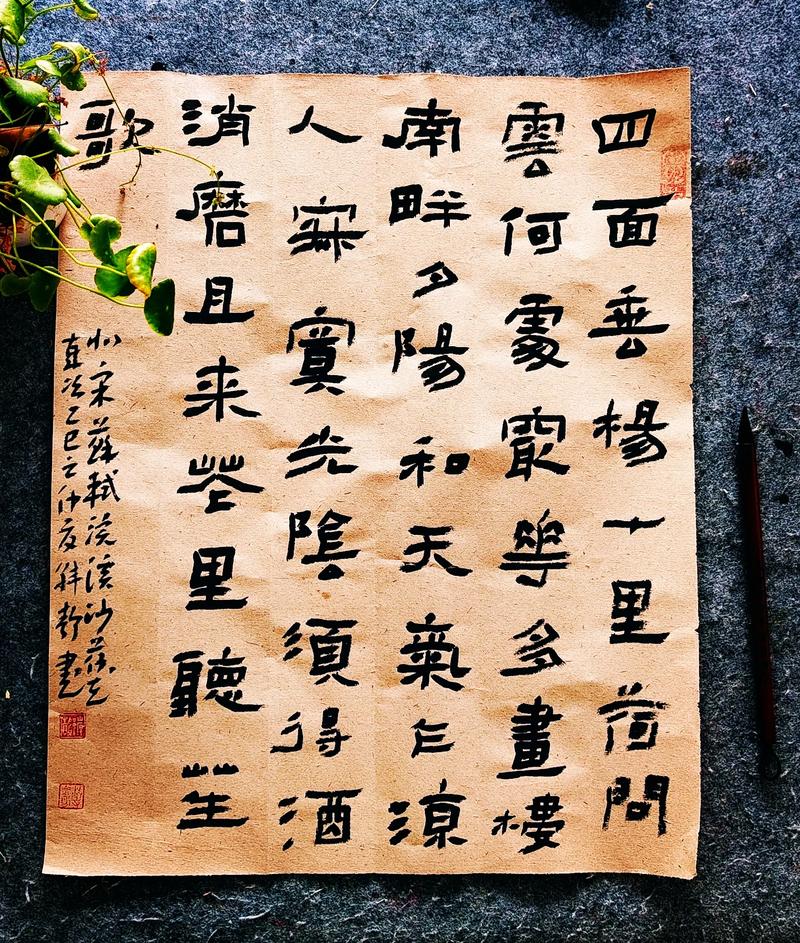 四面垂楊十里荷問
雲何處冣華多畫樓
南畔夕陽和天氣乍涼
人寂寞光陰須得酒
消磨且来花里聽笙
歌
宋蘇軾浣溪沙荷花
次乙巳之仲夏静書